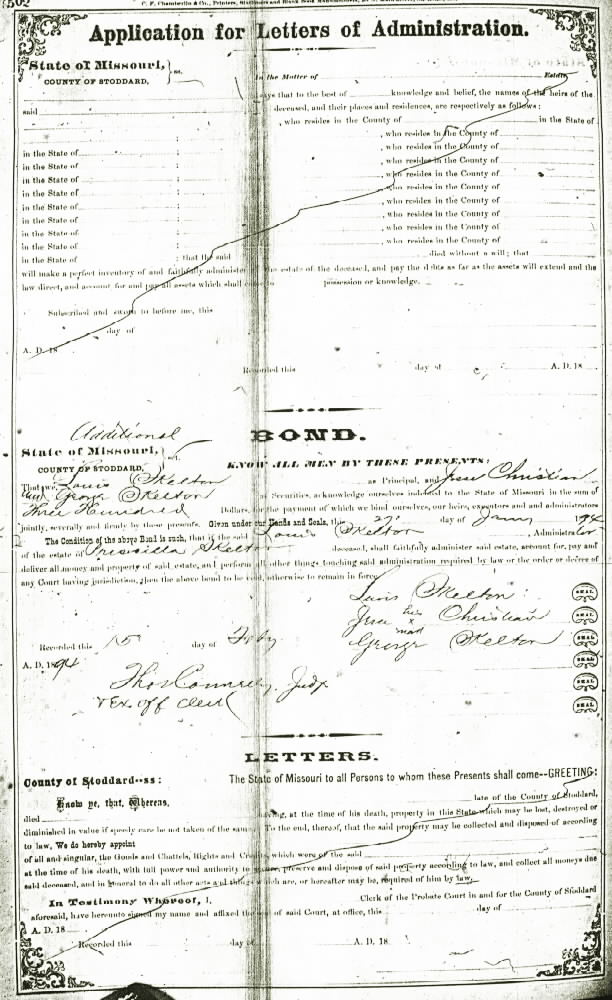 502
C. F. Chamberlin & Co., Printers, Stationers and Blank Book Manufacturers,
Application for Letters of Administration.
State of Missouri, } ss.
COUNTY OF STODDARD,
In the Matter of Estate,
said
says that to the best of knowledge and belief, the names of the heirs of the
deceased, and their places and residences, are respectively as follows:
, who resides in the County of in the State of
, who resides in the County of
in the State of ; , who resides in the County of
in the State of ; , who resides in the County of
in the State of ; , who resides in the County of
in the State of ; , who resides in the County of
in the State of ; , who resides in the County of
in the State of ; , who resides in the County of
in the State of ; , who resides in the County of
in the State of ; , who resides in the County of
in the State of ; that the said died without a will; that
will make a perfect inventory of and faithfully administer the estate of the deceased, and pay the debts as far as the assets will extend and the
law direct, and account for and pay all assets which shall come to possession or knowledge.
Subscribed and sworn to before me, this
day of
A. D. 18
Recorded this day of A. D. 18
Additional
BOND.
State of Missouri, } sct.
COUNTY OF STODDARD,
KNOW ALL MEN BY THESE PRESENTS:
That we, Louis Skelton as Principal, and Jesse Christian
and George Skelton as Securities, acknowledge ourselves indebted to the State of Missouri in the sum of
Three Hundred Dollars, for the payment of which we bind ourselves, our heirs, executors and administrators
jointly, severally and firmly by these presents. Given under our Hands and Seals, this 27 day of Jany 1894
The Condition of the above Bond is such, that if the said Louis Skelton, Administrator
of the estate of Pressilla Skelton deceased, shall faithfully administer said estate, account for, pay and
deliver all money and property of said estate, and perform all other things touching said administration required by law or the order or decree of
any Court having jurisdiction, then the above bond to be void, otherwise to remain in force.
Luis Skelton SEAL
Jesse his x mark Christian SEAL
George Skelton SEAL
SEAL
SEAL
SEAL
Recorded this 15 day of Feby
A. D. 1894
Thos Connelly, Judge
& Ex. off Clerk
LETTERS.
County of Stoddard--ss:
The State of Missouri to all Persons to whom these Presents shall come--GREETING:
Know ye, that, Whereas,
late of the County of Stoddard,
died having, at the time of his death, property in this State which may be lost, destroyed or
diminished in value if speedy care be not taken of the same. To the end, thereof, that the said property may be collected and disposed of according
to law, We do hereby appoint
of all and singular, the Goods and Chattels, Rights and Credits, which were of the said
at the time of his death, with full power and authority to secure, preserve and dispose of said property according to law, and collect all moneys due
said deceased, and in general to do all other acts and things which are, or hereafter may be, required of him by law.
In Testimony Whereof, I, Clerk of the Probate Court in and for the County of Stoddard
aforesaid, have hereunto signed my name and affixed the seal of said Court, at office, this day of
A. D. 18
Recorded this day of A. D. 18